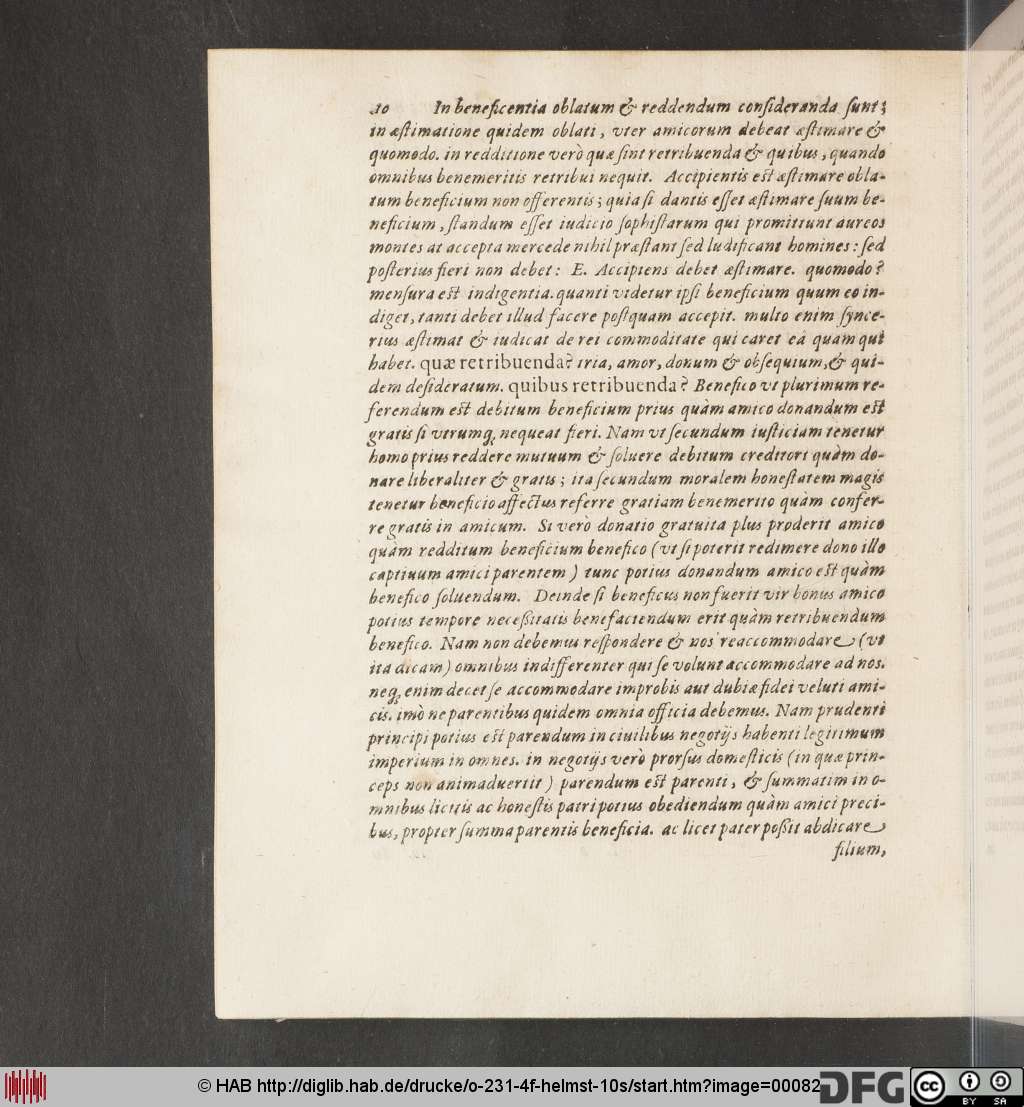 10 In beneficentia oblatum & reddendum consideranda sunt;
in æstimatione quidem oblati, vter amicorum debeat æstimare &
quomodo. in redditione verò quæ sint retribuenda & quibus, quando
omnibus benemeritis retribui nequit. Accipientis est æstimare obla-
tum beneficium non offerentis; quia si dantis esset æstimare suum be-
neficium, standum esset iudicio sophistarum qui promittunt aureos
montes at accepta mercede nihil præstant sed ludificant homines: sed
posterius fieri non debet: E. Accipiens debet æstimare. quomodo?
mensura est indigentia. quanti videtur ipsi beneficium quum eo in-
diget, tanti debet illud facere postquam accepit. multo enim synce-
rius æstimat & iudicat de rei commoditate qui caret eâ quam qui
habet. quæ retribuenda? tria, amor, donum & obsequium, & qui-
dem desideratum. quibus retribuenda? Benefico vt plurimum re-
ferendum est debitum beneficium prius quàm amico donandum est
gratis si vtrumq; nequeat fieri. Nam vt secundum iusticiam tenetur
homo prius reddere mutuum & soluere debitum creditori quàm do-
nare liberaliter & gratis; ita secundum moralem honestatem magis
tenetur beneficio affectus referre gratiam benemerito quàm confer-
re gratis in amicum. Si verò donatio gratuita plus proderit amico
quàm redditum beneficium benefico (vt si poterit redimere dono illo
captiuum amici parentem) tunc potius donandum amico est quàm
benefico soluendum. Deinde si beneficus non fuerit vir bonus amico
potius tempore necessitatis benefaciendum erit quàm retribuendum
benefico. Nam non debemus respondere & nos reaccommodare (vt
ita dicam) omnibus indifferenter qui se volunt accommodare ad nos.
neq; enim decet se accommodare improbis aut dubiæ fidei veluti ami-
cis. imò ne parentibus quidem omnia officia debemus. Nam prudenti
principi potius est parendum in ciuilibus negotijs habenti legitimum
imperium in omnes. in negotijs verò prorsus domesticis (in quæ prin-
ceps non animaduertit) parendum est parenti, & summatim in o-
mnibus licitis ac honestis patri potius obediendum quàm amici preci-
bus, propter summa parentis beneficia. ac licet pater possit abdicare
filium,
© HAB http://diglib.hab.de/drucke/o-231-4f-helmst-10s/start.htm?image=00082
DFG
cc BY SA